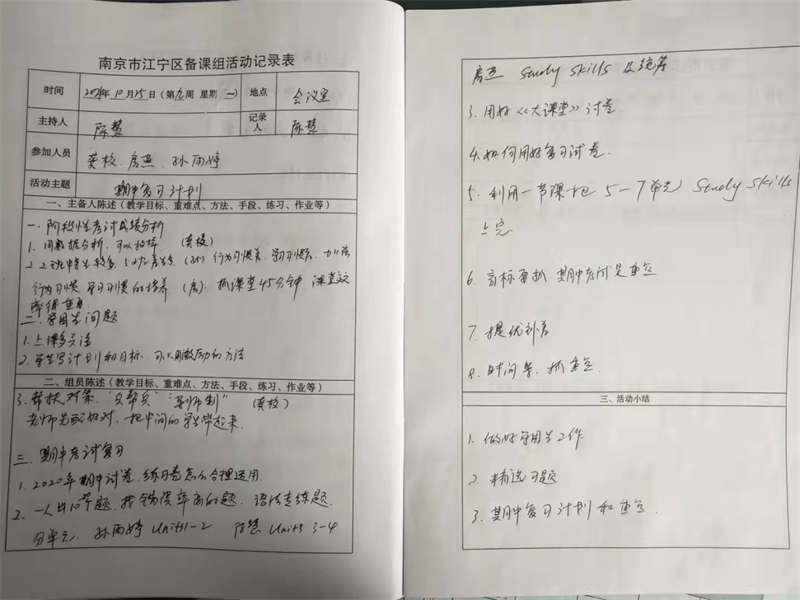 南京市江宁区备课组活动记录表
时间 2021年10月25日（第九周 星期一） 地点 会议室
主持人 陈慧 记录人 陈慧
参加人员 龚校、房燕、孙雨婷
活动主题 期中复习计划
一、主备人陈述（教学目标、重难点、方法、手段、练习、作业等）
一、阶段性考试成绩分析
1. 用数据分析，可以 （龚校）
2. 2班中等生较多，5班 行为习惯 学习习惯
行为习惯 学习习惯的培养（房）：抓课堂45分钟 课堂效
率很重要
二、学困生问题
1. 上课多关注
2. 学生写计划和目标，可以用激励的方法
二、组员陈述（教学目标、重难点、方法、手段、练习、作业等）
3. 帮扶对象，"兵帮兵" （龚校）
老师先配好对，把中间的学生带起来
三、期中考试复习
1. 2020年期中试卷、练习卷怎么合理运用
2. 一人出10个题，找错误率高的题，语法专练题
分单元，孙雨婷 Units 1-2 陈慧 Units 3-4
房燕 Study skills 及统筹
3. 用好《大课堂》试卷
4. 如何用好复习试卷
5. 利用一节课把5-7单元 Study skills
上完
6. 期中考试是重点
7. 提优补差
8. 时间紧，抓重点
三、活动小结
1. 做好学困生工作
2. 精选习题
3. 期中复习计划和重点